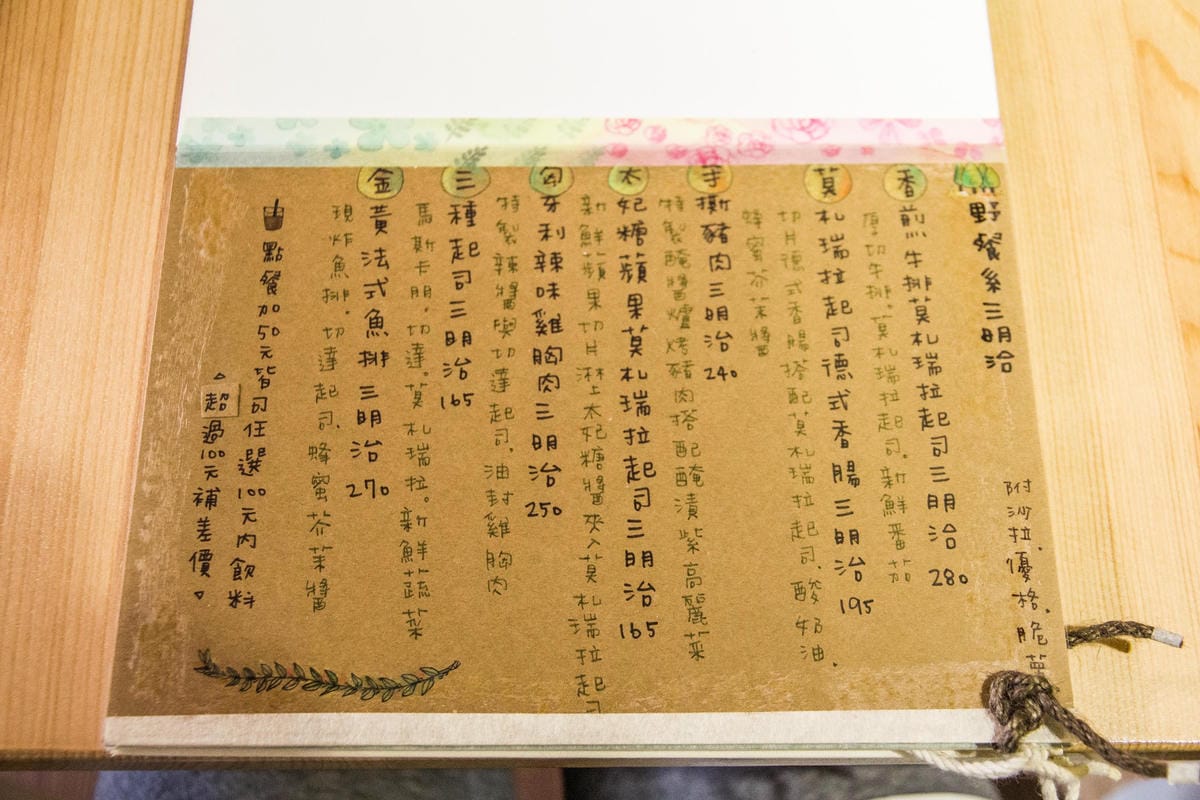 野餐系三明治
附沙拉.優格.脆薯
香煎牛排莫札瑞拉起司三明治 280
厚切牛排。莫札瑞拉起司.新鮮番茄
莫札瑞拉起司德式香腸三明治 195
切片德式香腸搭配莫札瑞拉起司.酸奶油.
蜂蜜芥茉醬
手撕豬肉三明治 240
特製醃醬爐烤豬肉搭配醃漬紫高麗菜
太妃糖蘋果莫札瑞拉起司三明治 165
新鮮蘋果切片淋上太妃糖醬夾入莫札瑞拉起司
匈牙利辣味雞胸肉三明治 250
特製辣醬與切達起司.油封雞胸肉
三種起司三明治 165
馬斯卡朋。切達。莫札瑞拉。新鮮蔬菜
金黃法式魚排三明治 270
現炸魚排.切達起司.蜂蜜芥茉醬
點餐加50元皆可任選100元內飲料
超過100元補差價。